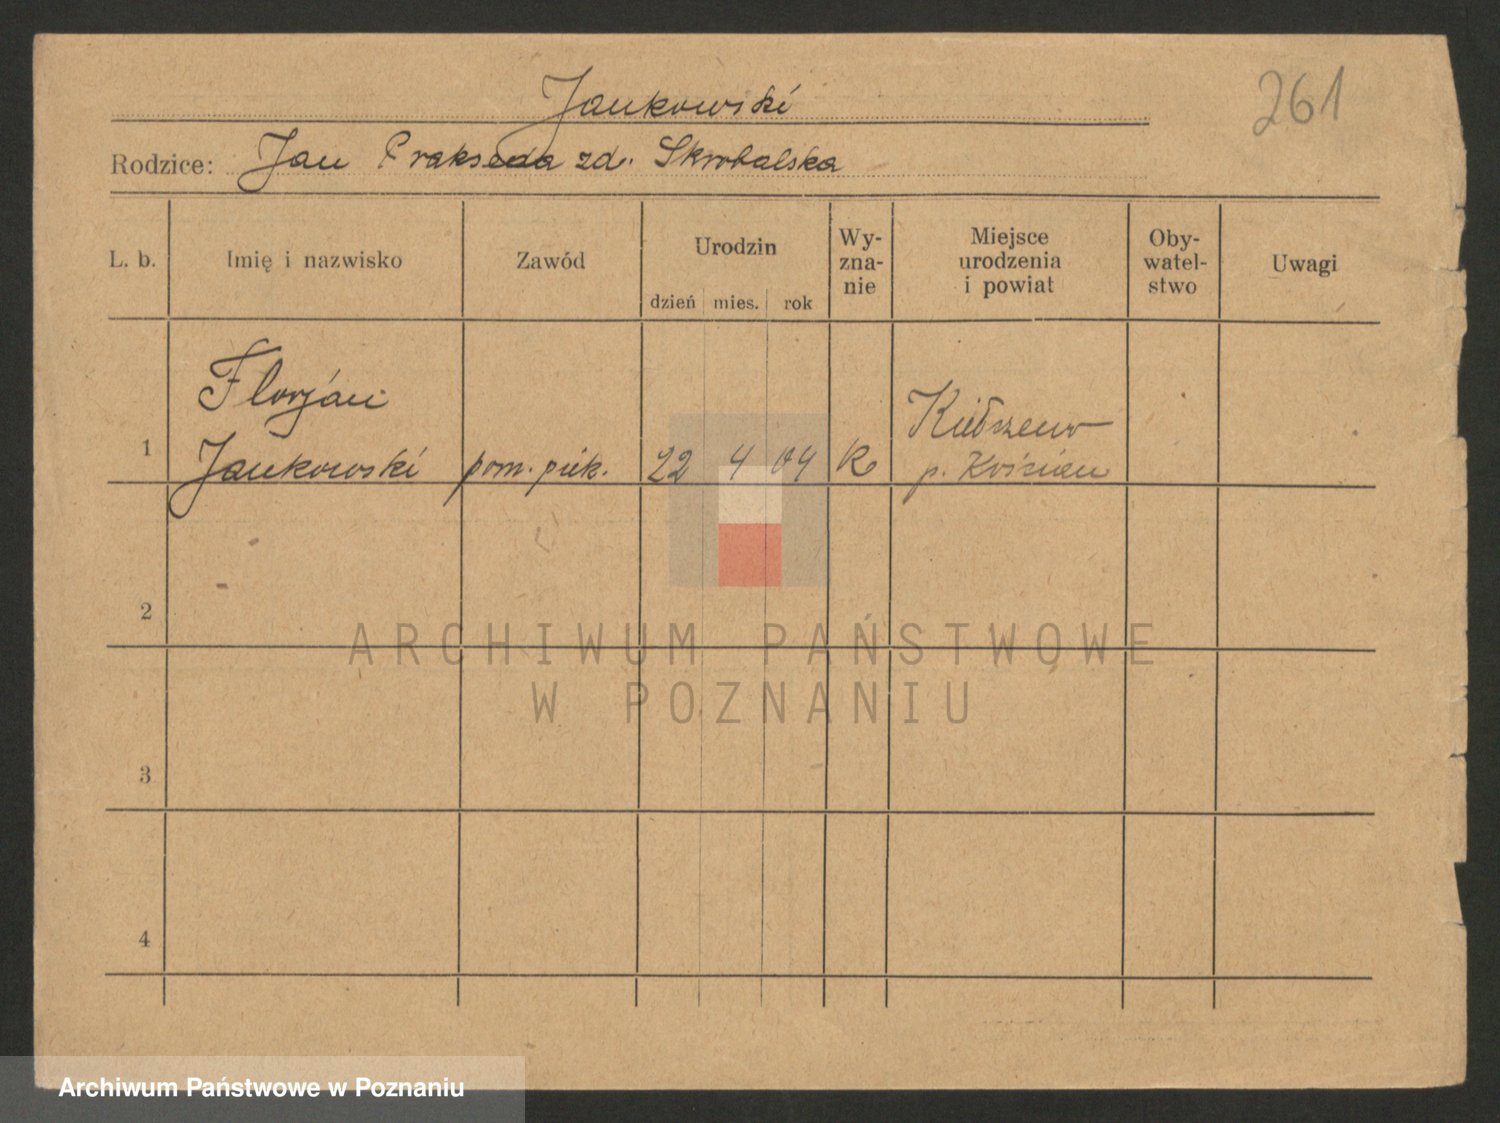 261
Jankowski
Rodzice: Jan Prakseda zd. Skrobalska
L. b. Imię i nazwisko Zawód Urodzin dzień mies. rok Wy-zna-nie Miejsce urodzenia i powiat Oby-watel-stwo Uwagi
Florjan
1 Jankowski pom. piek. 22 4 04 R Kiełczewo
p. Kościan
2
ARCHIWUM PAŃSTWOWE
W POZNANIU
3
4
Archiwum Państwowe w Poznaniu